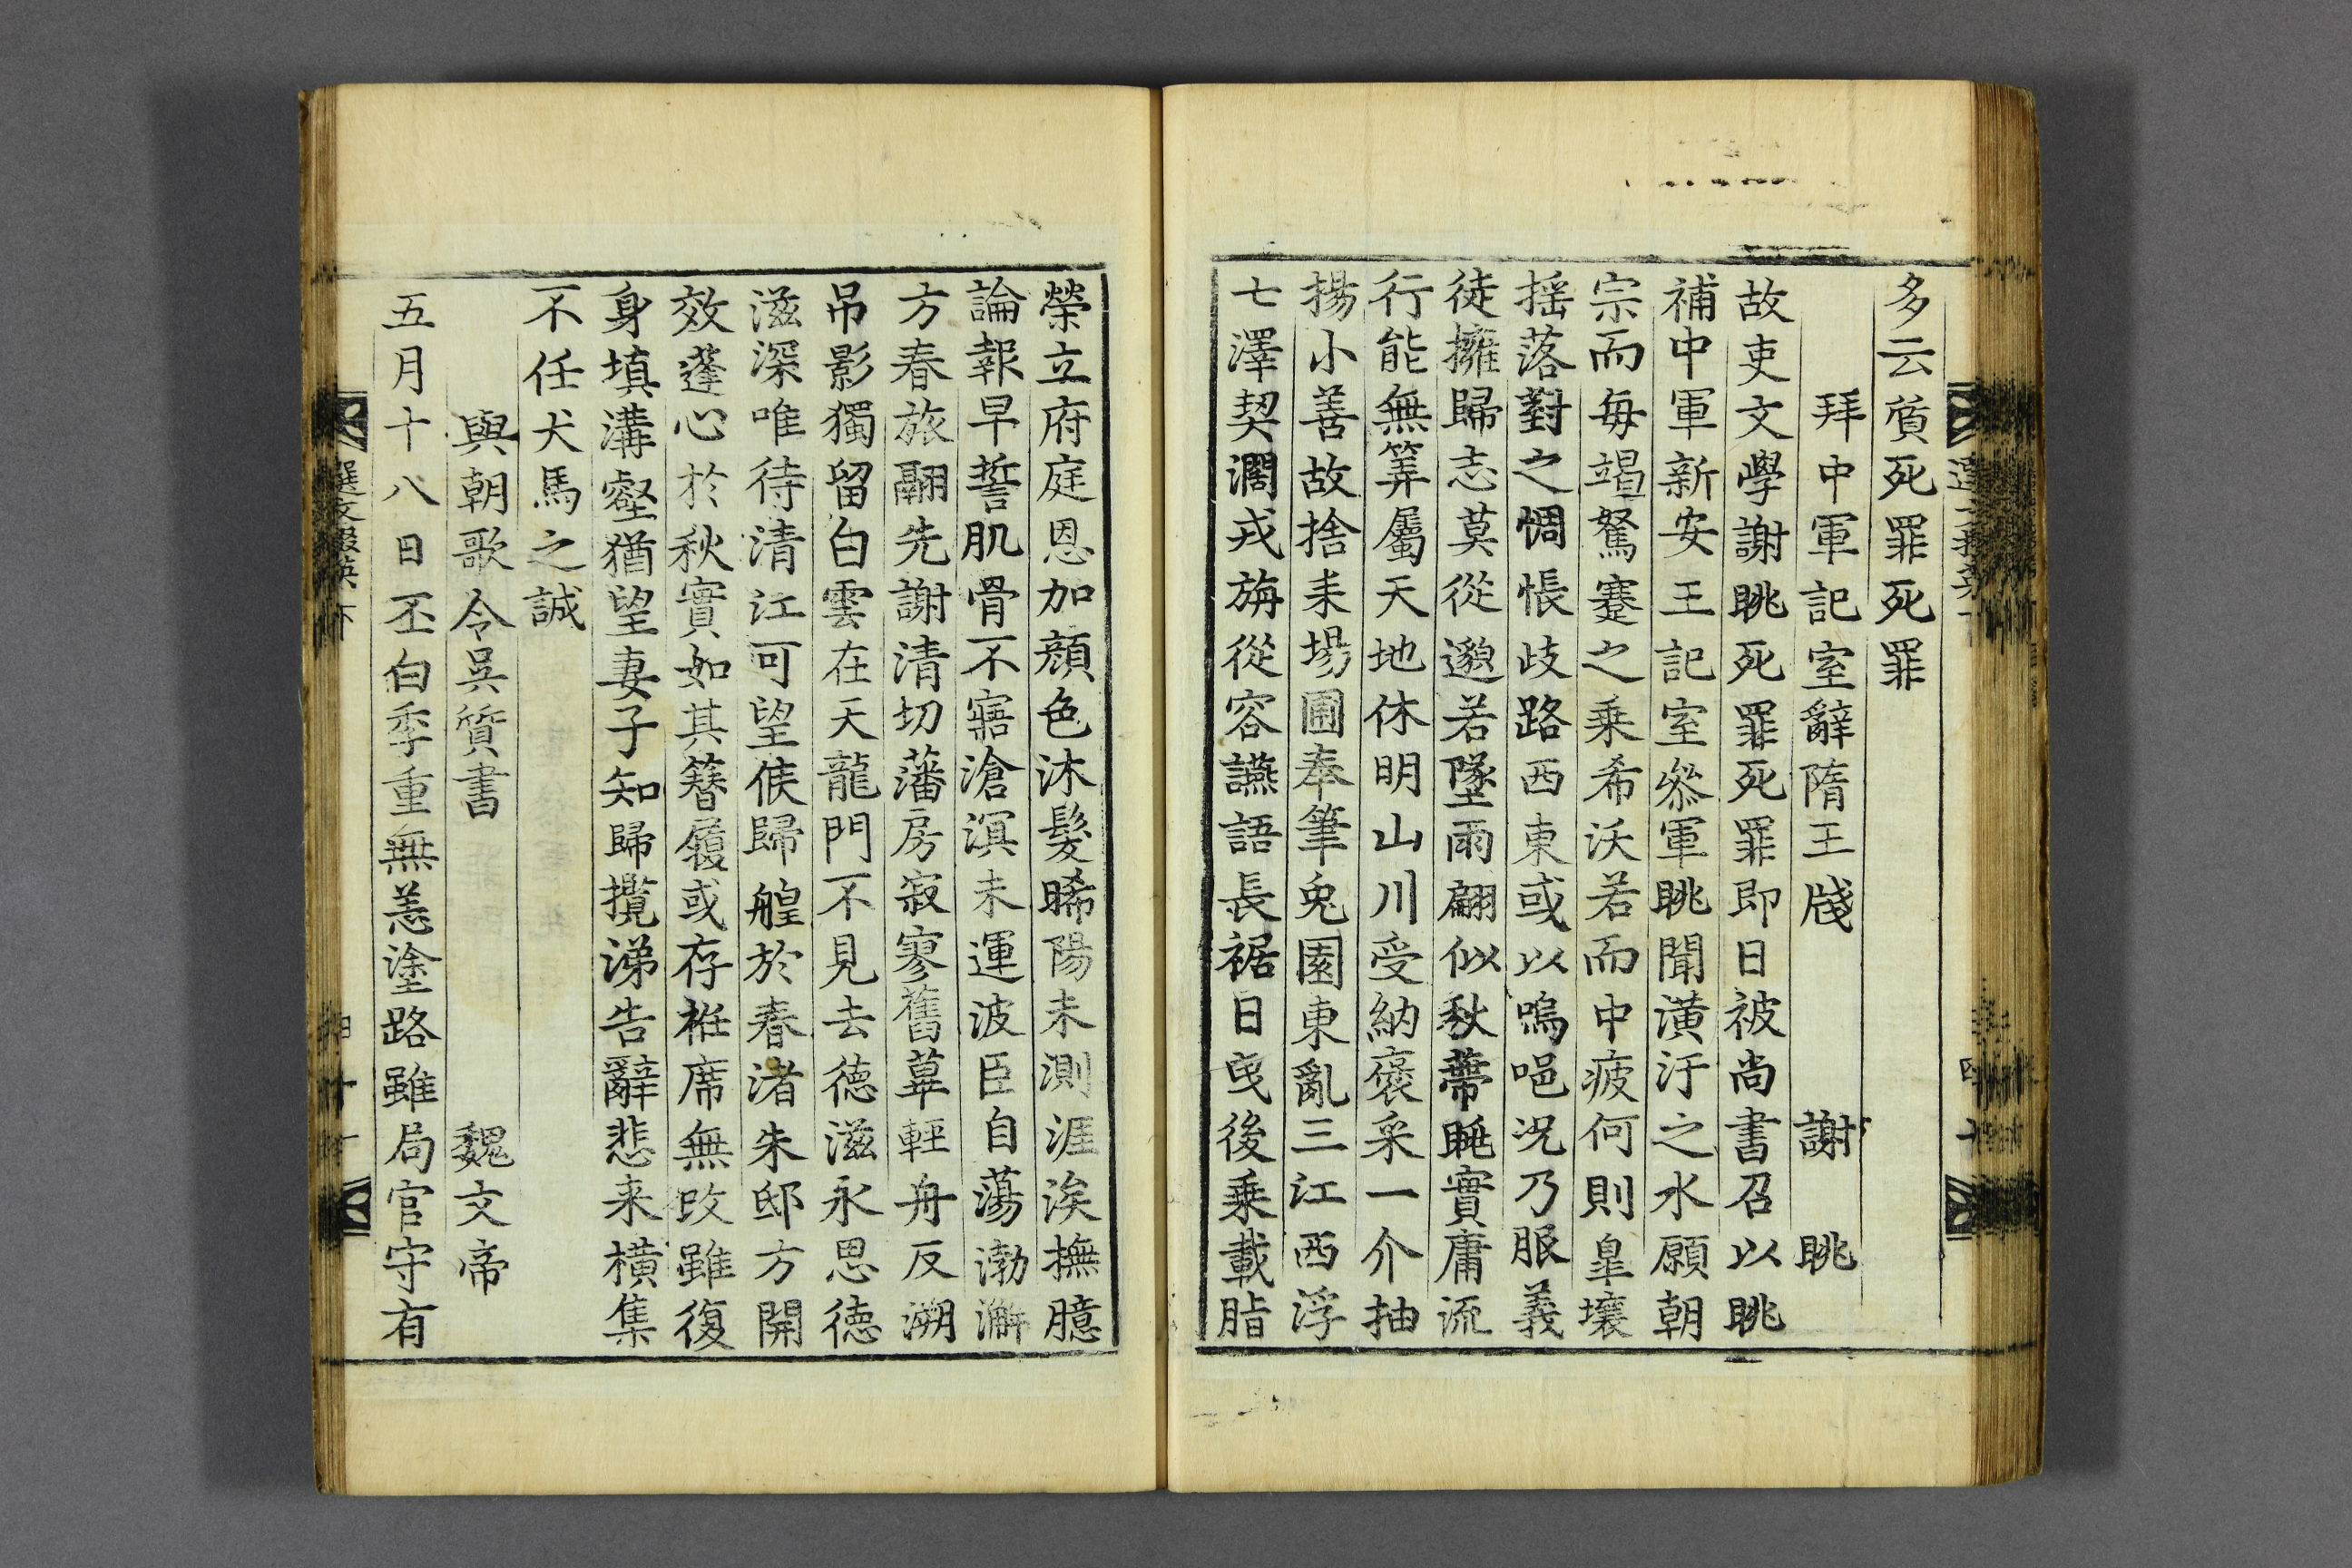 多云質死罪死罪
拜中軍記室辭隋王牋 謝 眺
故吏文學謝眺死罪死罪即日被尚書召以眺
補中軍新安王記室叅軍眺聞潢汙之水願朝
宗而每竭駑蹇之乘希沃若而中疲何則臯壤
揺落對之惆悵歧路西東或以嗚唈况乃服義
徒擁歸志莫從邈若墜雨翩似秋蔕眺實庸流
行能無筭屬天地休明山川受納褒采一介抽
揚小善故捨耒場圃奉筆兎園東亂三江西浮
七澤契濶戎旃從容讌語長裾日曵後乗載脂
榮立府庭恩加顔色沐髮晞陽未測涯涘撫臆
論報早誓肌骨不寤滄溟未運波臣自蕩渤澥
方春旅翮先謝清切藩房寂寥舊蓽輕舟反溯
吊影獨留白雲在天龍門不見去德滋永思德
滋深唯待清江可望候歸艎於春渚朱邸方開
效蓬心於秋實如其簪履或存衽席無改雖復
身填溝壑猶望妻子知歸攬涕告辭悲来横集
不任犬馬之誠
與朝歌令吳質書 魏文帝
五月十八日丕白季重無恙塗路雖局官守有
選文掇英下